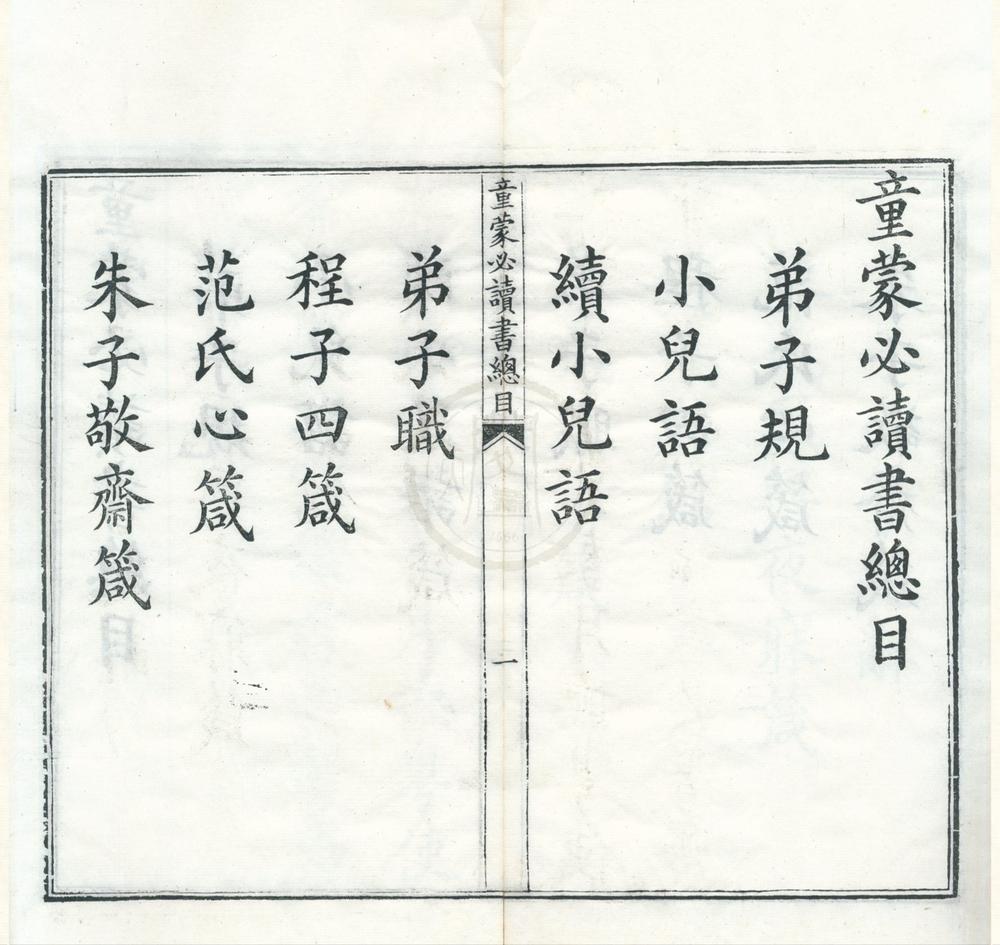 童蒙必讀書總目
弟子規
小兒語
續小兒語
童蒙必讀書總目
一
弟子職
程子四箴
范氏心箴
朱子敬齋箴